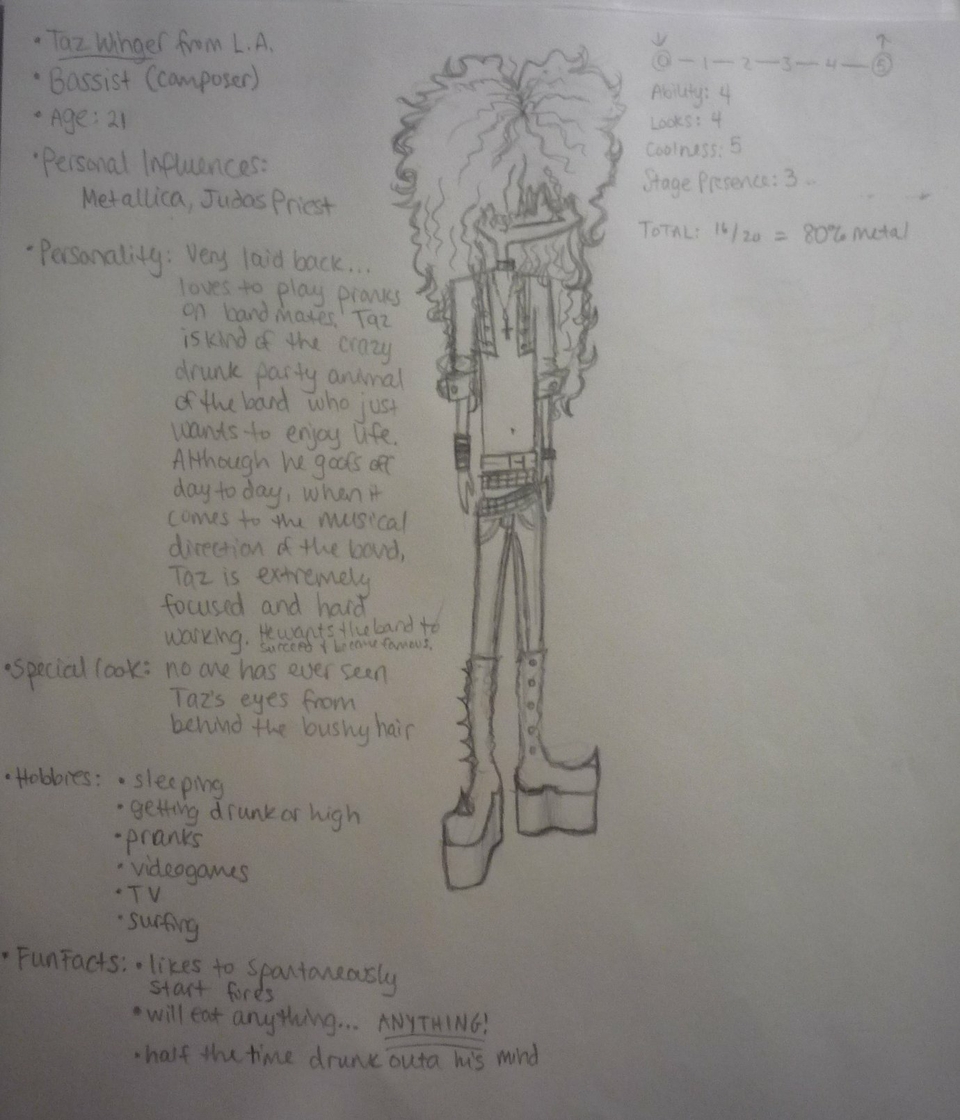 • Taz Winger from L.A.
• Bassist (composer)
• Age: 21
• Personal Influences:
Metallica, Judas Priest
• Personality: Very laid back...
loves to play pranks
on band mates. Taz
is kind of the crazy
drunk party animal
of the band who just
wants to enjoy life.
Although he goofs off
day to day, when it
comes to the musical
direction of the band,
Taz is extremely
focused and hard
working. He wants the band to
succeed & become famous.
• Special look: no one has ever seen
Taz's eyes from
behind the bushy hair
• Hobbies: • sleeping
• getting drunk or high
• pranks
• videogames
• TV
• surfing
• Fun Facts: • likes to spontaneously
start fires
• will eat anything... ANYTHING!
• half the time drunk outa his mind
↓ ↑
0 — 1 — 2 — 3 — 4 — 5
Ability: 4
Looks: 4
Coolness: 5
Stage Presence: 3
TOTAL: 16/20 = 80% metal